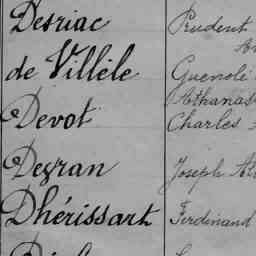 Desriac Prudent
de Villèle Guenolé
Athanas
Devot Charles
Deyran Joseph
Dhérissart Ferdinand